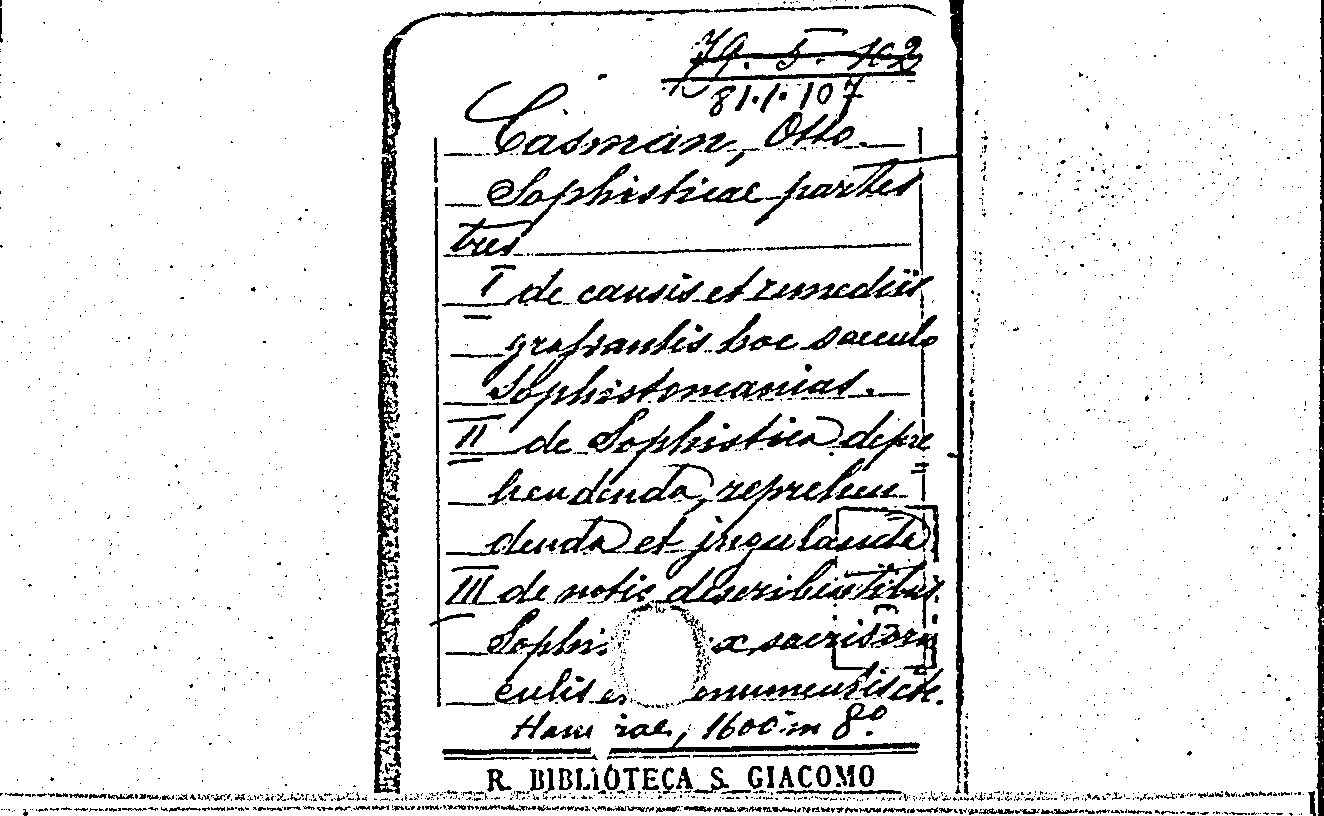 79. 5. 102
81.1.107
Casman, Otto.
Sophisticae partes
tres
I de causis et remediis
grassantis hoc saeculo
Sophistomanias.
II de Sophistica depre
hendenda, reprehen
denda et jugulanda
III de notis describentibus
Sophis x sacris ora
culis e onumentis etc.
Ham rae, 1600 in 8º
R. BIBLIOTECA S. GIACOMO